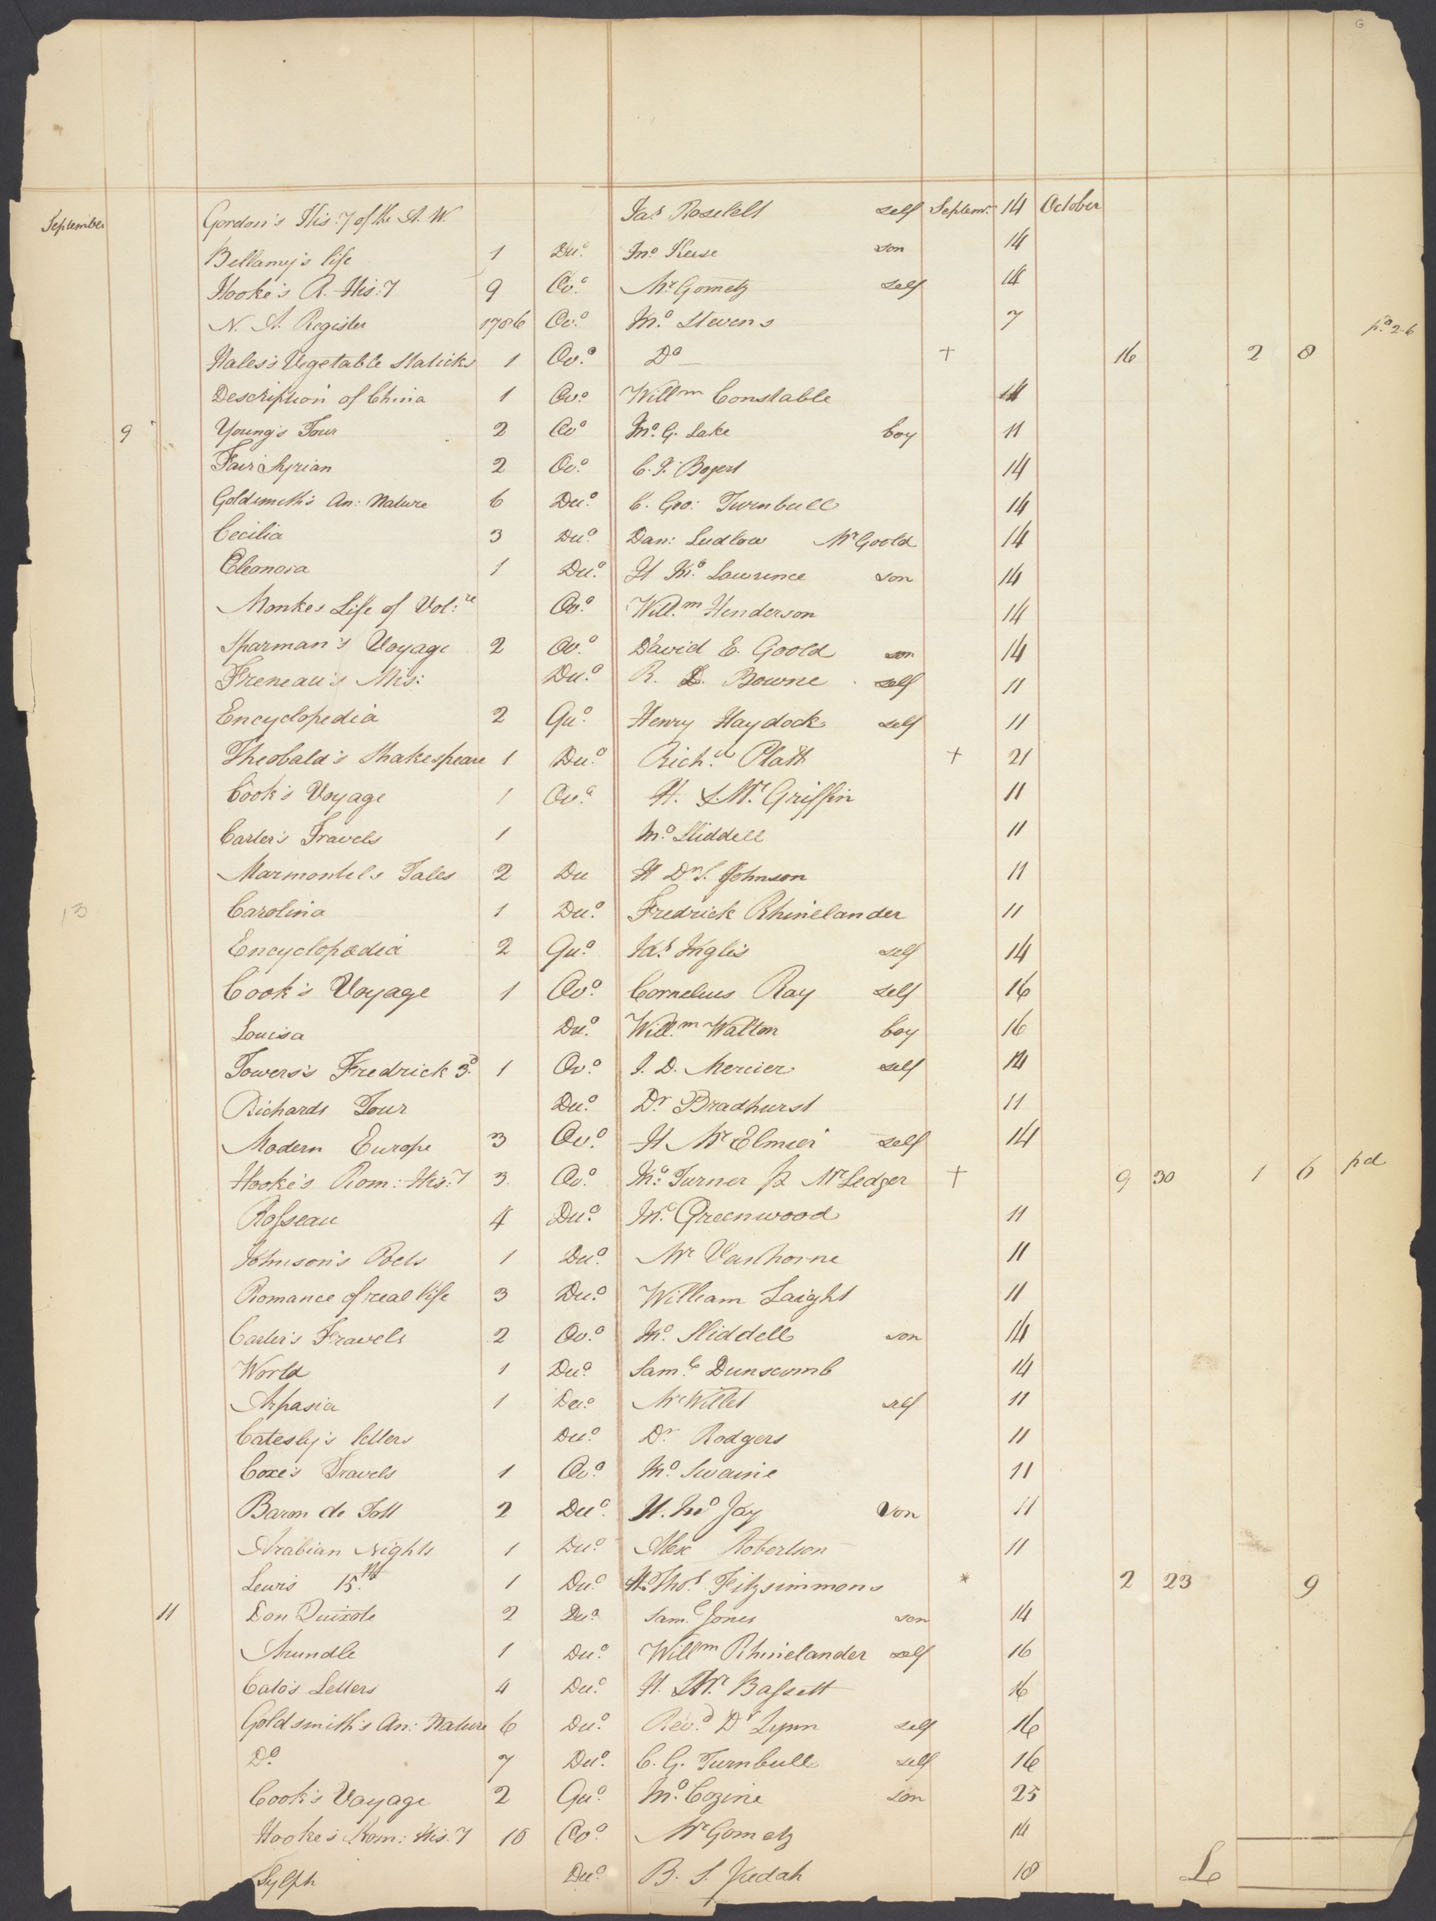 September Gordon's His:y of the A. W. Jas. Roselelt self Septemr. 14 October
Bellamy's life 1 Duo. Jno Keese son 14
Hooke's R. His:y 9 Ovo. Mr Gometz self 14
N. A. Register 1786 Ovo. Jno. Stevens 7
Hales's Vegetable Staticks 1 Ovo. Do + 16 2 8 pd. 2-6
Description of China 1 Ovo. Willm Constable 14
9 Young's Tour 2 Ovo Jno. G. Lake boy 11
Fair Syrian 2 Ovo. C. J. Bogert 14
Goldsmith's An: Nature 6 Duo. C. Geo: Turnbull 14
Cecilia 3 Duo. Dan: Ludlow Mr Goold 14
Eleonora 1 Duo. H Jno. Lawrence son 14
Monkes Life of Vol:re Ovo. Will.m Henderson 14
Sparman's Voyage 2 Ovo. David E. Goold son 14
Freneau's Mis: Duo. R. L. Bowne self 11
Encyclopedia 2 Quo. Henry Haydock self 11
Theobald's Shakespeare 1 Duo. Rich.d Platt + 21
Cook's Voyage 1 Ovo. H. S. Mr. Griffin 11
Carter's Travels 1 Jno. Sliddell 11
Marmontel's Tales 2 Du H Dr. S. Johnson 11
13 Carolina 1 Duo. Fredrick Rhinelander 11
Encyclopædia 2 Quo. Jas. Inglis self 14
Cook's Voyage 1 Ovo. Cornelius Ray self 16
Louisa Duo. Will.m Walton boy 16
Towers's Fredrick 3d. 1 Ovo. J. D. Mercier self 14
Richards Tour Duo. Dr Bradhurst 11
Modern Europe 3 Ovo. H Mr Elmier self 14
Hooke's Rom: His:y 3 Ovo. Jno. Turner Jr Mr Ledger + 9 30 1 6 pd
Rosseau 4 Duo. Jno. Greenwood 11
Johnson's Poets 1 Duo. Mr Vanhorne 11
Romance of real life 3 Duo. William Laight 11
Carter's Travels 2 Ovo. Jno. Sliddell son 14
World 1 Duo. Saml. Dunscomb 14
Aspasia 1 Duo. Mr Willet self 11
Catesby's letters Duo. Dr Rodgers 11
Coxe's Travels 1 Ovo. Jno. Swaine 11
Baron de Tott 2 Duo. H. Jno Jay son 11
Arabian Nights 1 Duo. Alex Robertson 11
Lewis 15th. 1 Duo. H. Thos. Fitzsimmons * 2 23 9
11 Don Quixote 2 Duo. Saml. Jones son 14
Arundle 1 Duo. Willm Rhinelander self 16
Cato's Letters 4 Duo. H. Mr. Bassett 16
Goldsmith's An: Nature 6 Duo. Rev.d Dr Lynn self 16
Do 7 Duo. C. G. Turnbull self 16
Cook's Voyage 2 Quo. Jno. Cozine son 25
Hooke's Rom: His:y 10 Ovo. Mr Gometz 14
Sylph Duo. B. S. Judah 18 L